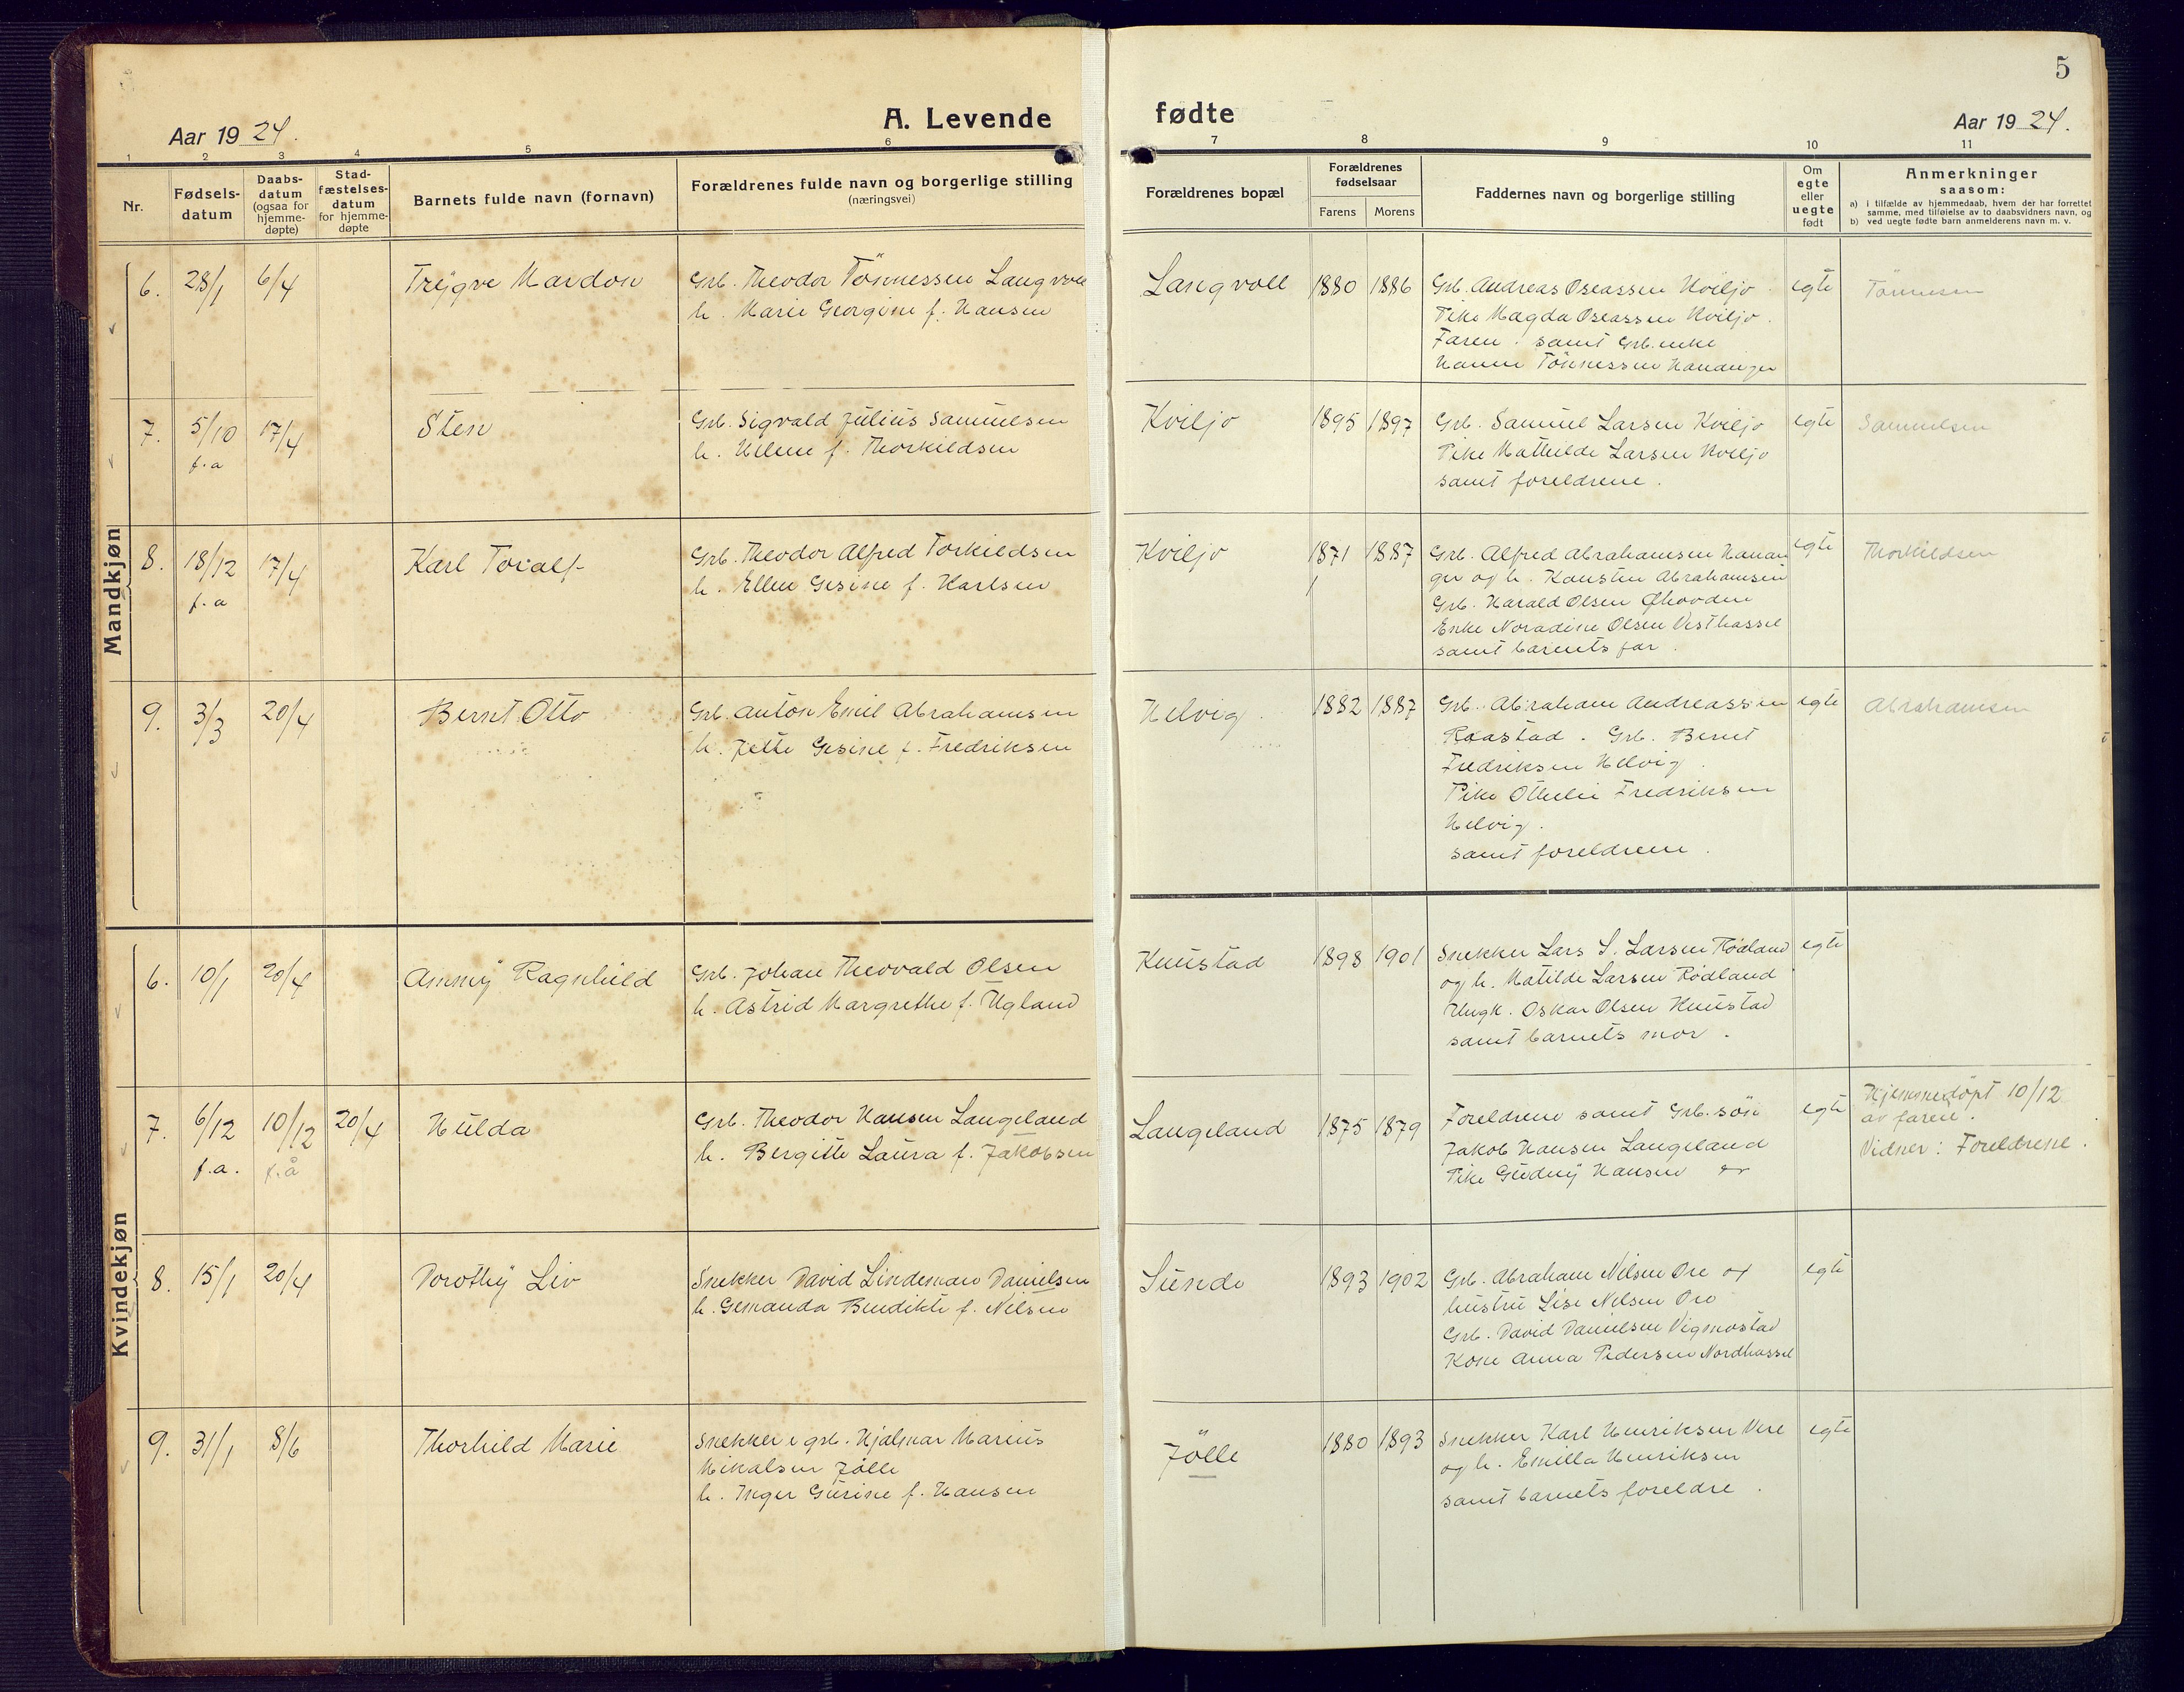 5
A. Levende fødte
Aar 1924.
Aar 1924.
1 2 3 4 5 6 7 8 9 10 11
Nr.
Fødsels-
datum
Daabs-
datum
(ogsaa for
hjemme-
døpte)
Stad-
fæstelses-
datum
for hjemme-
døpte
Barnets fulde navn (fornavn)
Forældrenes fulde navn og borgerlige stilling
(næringsvei)
Forældrenes bopæl
Forældrenes
fødselsaar
Farens Morens
Faddernes navn og borgerlige stilling
Om
egte
eller
uegte
født
Anmerkninger
saasom:
a) i tilfælde av hjemmedaab, hvem der har forrettet
samme, med tilføielse av to daabsvidners navn, og
b) ved uegte fødte barn anmelderens navn m. v.
Mandkjøn
6. 28/1 6/4
Trygve Mardon
Grb. Theodor Tönnessen Langvoll
h. Marie Georgine f. Hansen
Langvoll
1880 1886
Grb. Andreas Oseassen Kviljo
Pike Magda Oseassen Kviljo.
Faren. samt Grb. enke
Hanne Tönnessen Hananger
egte
Tönnesen
7. 5/10 17/4
f.a
Sten
Grb. Sigvald Julius Samuelsen
h. Helene f. Thorkildsen
Kviljo
1895 1897
Grb. Samuel Larsen Kviljo
Pike Mathilde Larsen Kviljo
samt foreldrene.
egte
Samuelsen
8. 18/12 17/4
f.a
Karl Toralf
Grb. Theodor Alfred Torkildsen
h. Ellen Gesine f. Karlsen
Kviljo
1871 1887
Grb. Alfred Abrahamsen Hanan
ger og h. Konstin Abrahamsen
Grb. Harald Olsen Øhovden
Enke Noradine Olsen Vesthassel
samt barnets far.
egte
Thorkildsen
9. 3/3 20/4
Bernt Otto
Grb. Anton Emil Abrahamsen
h. Jette Gesine f. Fredriksen
Helvig.
1882 1887
Grb. Abraham Andreassen
Raastad. Grb. Bernt
Fredriksen Helvig.
Pike Othelie Fredriksen
Helvig.
samt foreldrene.
egte
Abrahamsen
Kvindekjøn
6. 10/1 20/4
Anny Ragnhild
Grb. Johan Theovald Olsen
h. Astrid Margrethe f. Ugland
Knustad
1898 1901
Snekker Lars S. Larsen Rødland
og h. Matilde Larsen Rødland
Ungk. Oskar Olsen Knustad
samt barnets mor.
egte
7. 6/12 10/12 20/4
f.a. f.å
Hulda
Grb. Theodor Hansen Langeland
h. Bergitte Laura f. Jakobsen
Langeland
1875 1879
Foreldrene samt Grb. søn
Jakob Hansen Langeland
Pike Gudny Hansen
egte
Hjemmedöpt 10/12
av faren.
Vidner: Foreldrene.
8. 15/1 20/4
Dorothy Liv
Snekker David Lindeman Danielsen
h. Gemanda Bendikte f. Nilsen
Sunde
1893 1902
Grb. Abraham Nilsen Ore og
hustru Lise Nilsen Ore
Grb. David Danielsen Vigmostad
Kone Anna Pedersen Nordhassel
egte
9. 31/1 8/6
Thorhild Marie
Snekker e grb. Hjalmar Marius
Mikalsen Jölle
h. Inger Gurine f. Hansen
Jölle
1880 1893
Snekker Karl Henriksen Vere
og h. Emilla Henriksen
samt barnets foreldre.
egte